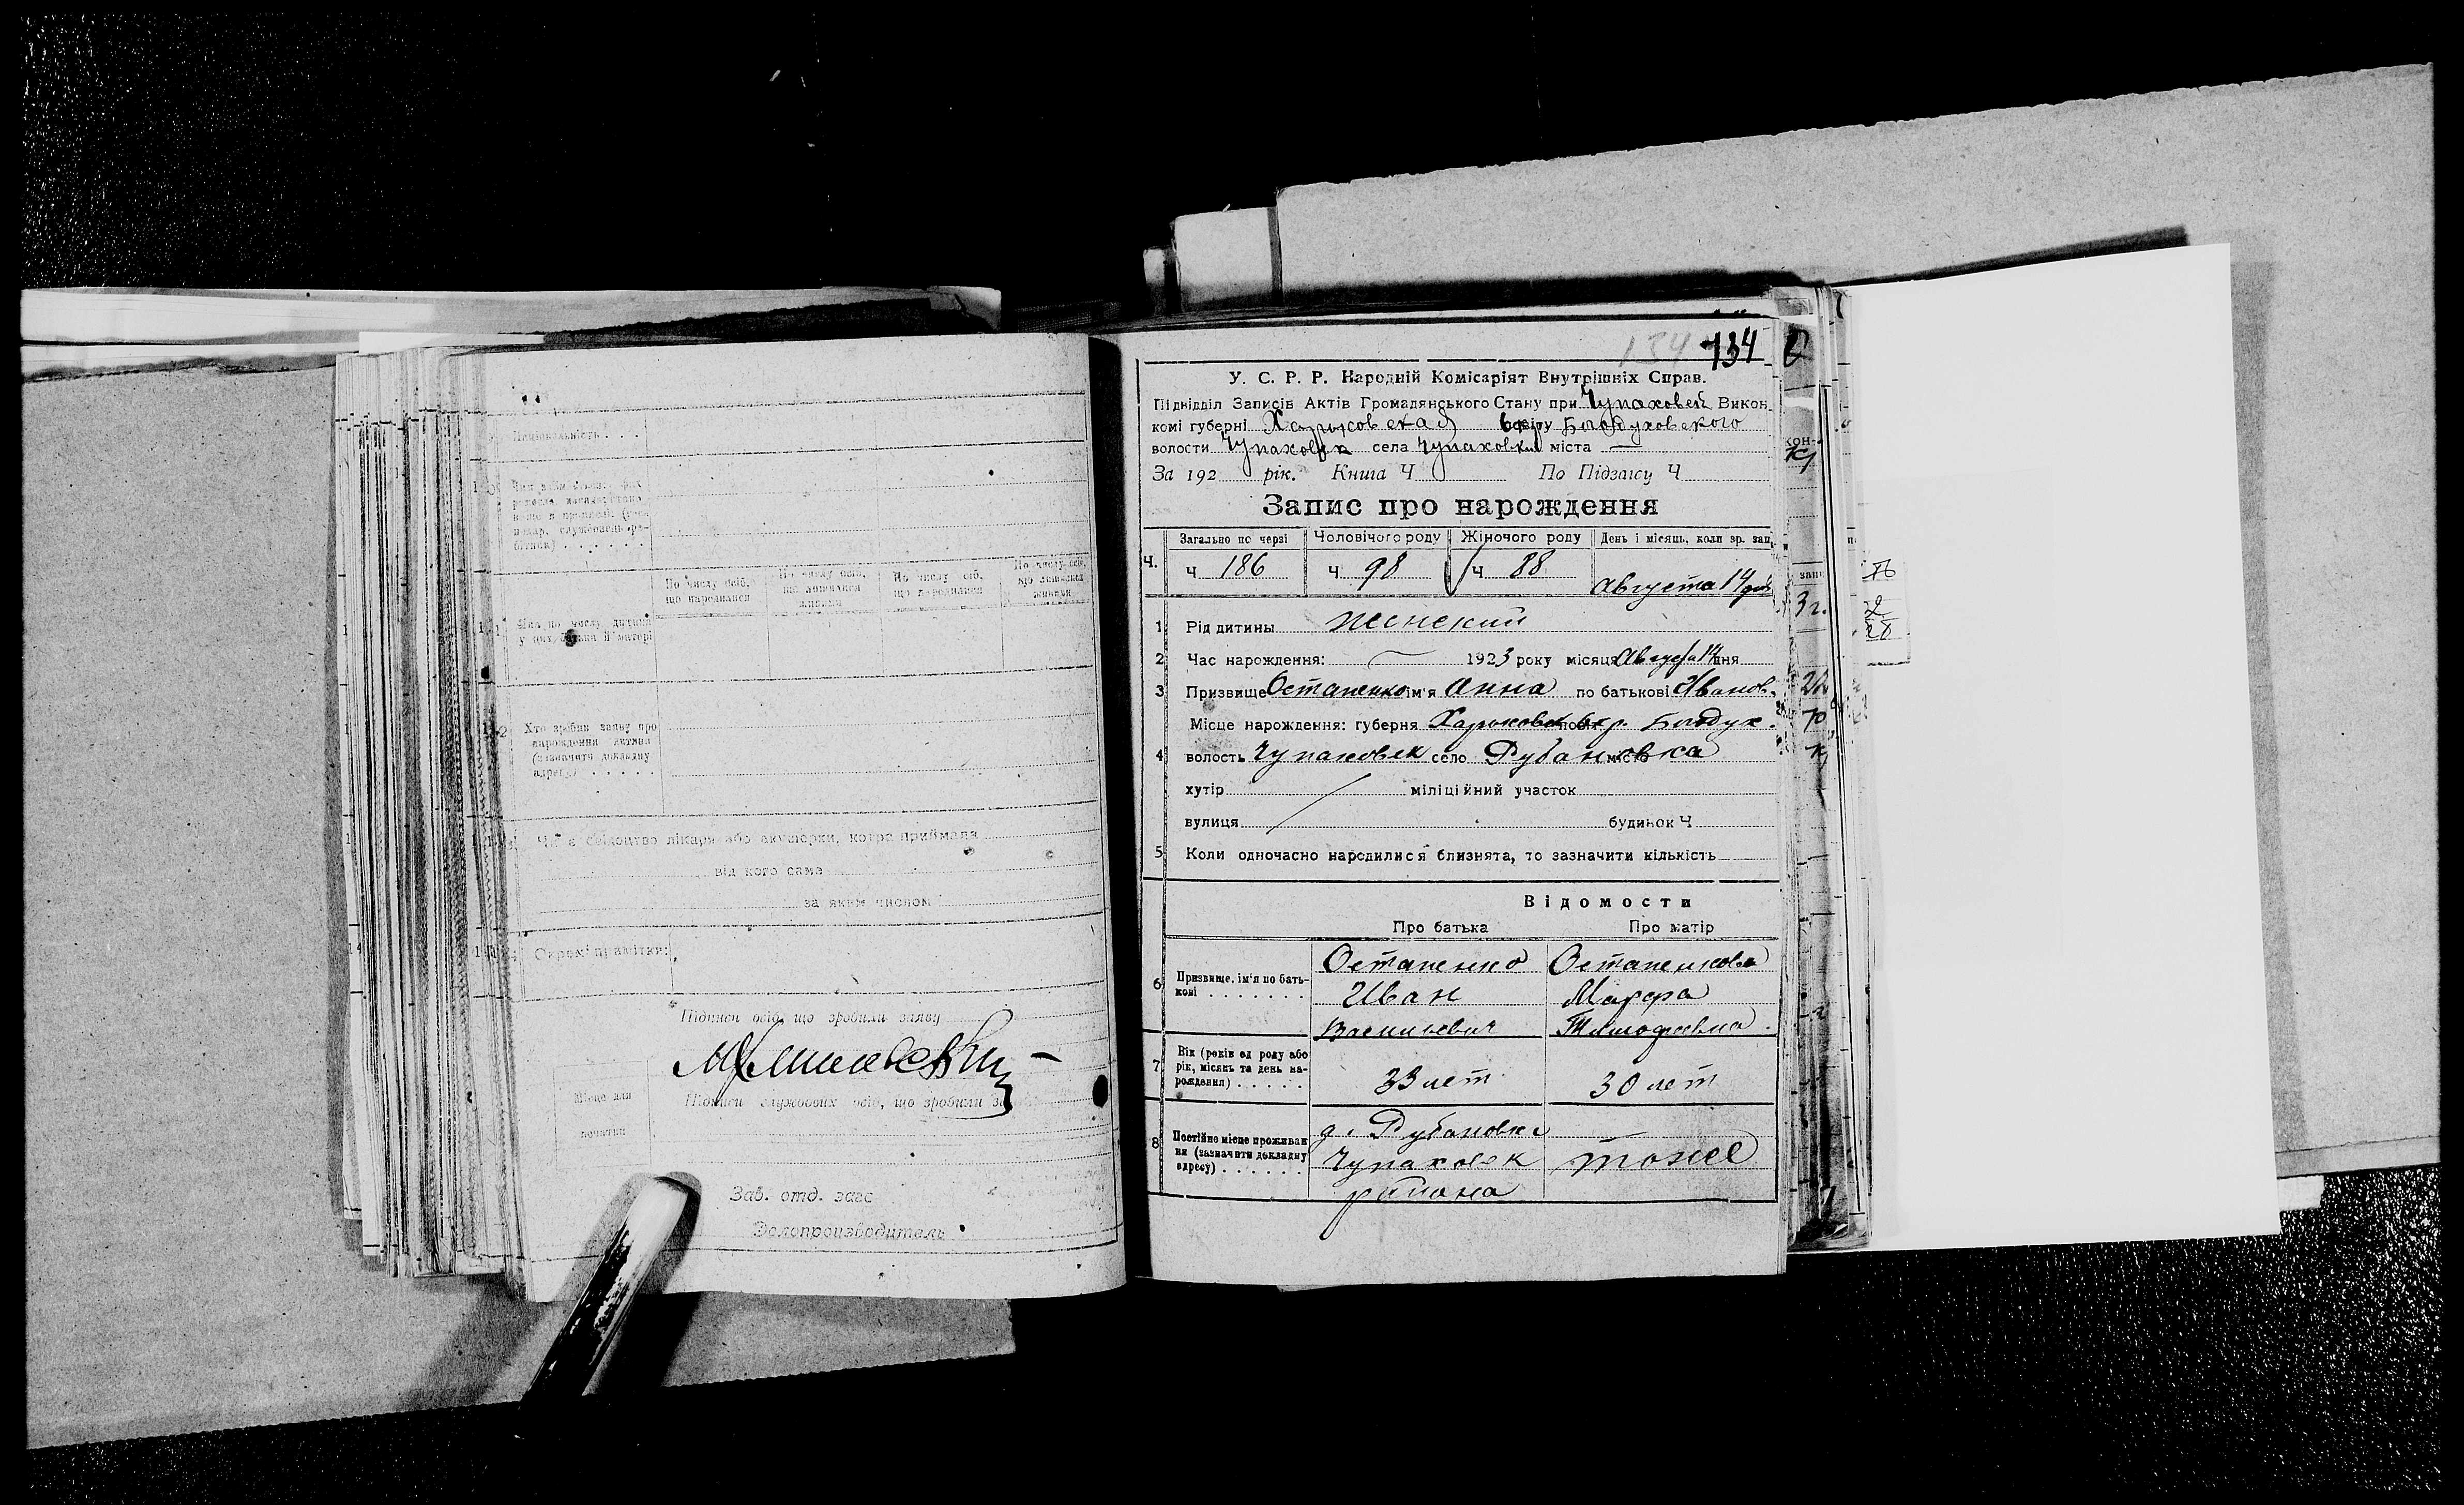 Національність . . . .
По числу осіб, що народилися
По числу осіб, що лишилися живими
По числу осіб, що народилися
По числу осіб, що лишилися живими
Яка по числу дитина у цих батька й матері
Хто зробив заяву про народження дитини (зазначити докладну адресу) . . . . .
Чи є свідоцтво лікаря або акушерки, котра приймала
від кого саме
за яким числом
Окремі примітки:
Підписи осіб, що зробили заяву
Підписи службових осіб, що зробили
Місце для
печатки
Зав. отд. загс
Делопроизводитель
134 134
У. С. Р. Р. Народній Комісаріят Внутрішніх Справ.
Підвідділ Записів Актів Громадянського Стану при Чупаховск Викон.
комі губерні Харьковская окр. Богодуховского
волости Чупаховск села Чупаховка міста —
За 192 рік. Книга Ч По Підзагсу Ч
Запис про нарождення
Ч. Загально по черзі Чоловічого роду Жіночого роду День і місяць, коли зр. зап.
ч 186 ч 98 ч 88 Августа 14 дня
1 Рід дитины женский
2 Час нарождення: — 1923 року місяця Августа 14 дня
3 Призвище Остапенко ім'я Анна по батькові Иванов.
Місце нарождення: губерня Харьковск окр. Богодух.
4 волость Чупаховск село Рубановка місто
хутір міліційний участок
вулиця будинок Ч
5 Коли одночасно народилися близнята, то зазначити кількість
Відомости
Про батька Про матір
6 Призвище, ім'я по батькові . . . . . . .
Остапенко Остапенкова
Иван Марфа
Васильевич Тимофеевна
7 Вік (років од роду або рік, місяць та день нарождення) . . . . .
33 лет 30 лет
8 Постійне місце проживання (зазначити докладну адресу) . . . . . .
д. Рубановка
Чупаховск тоже
района